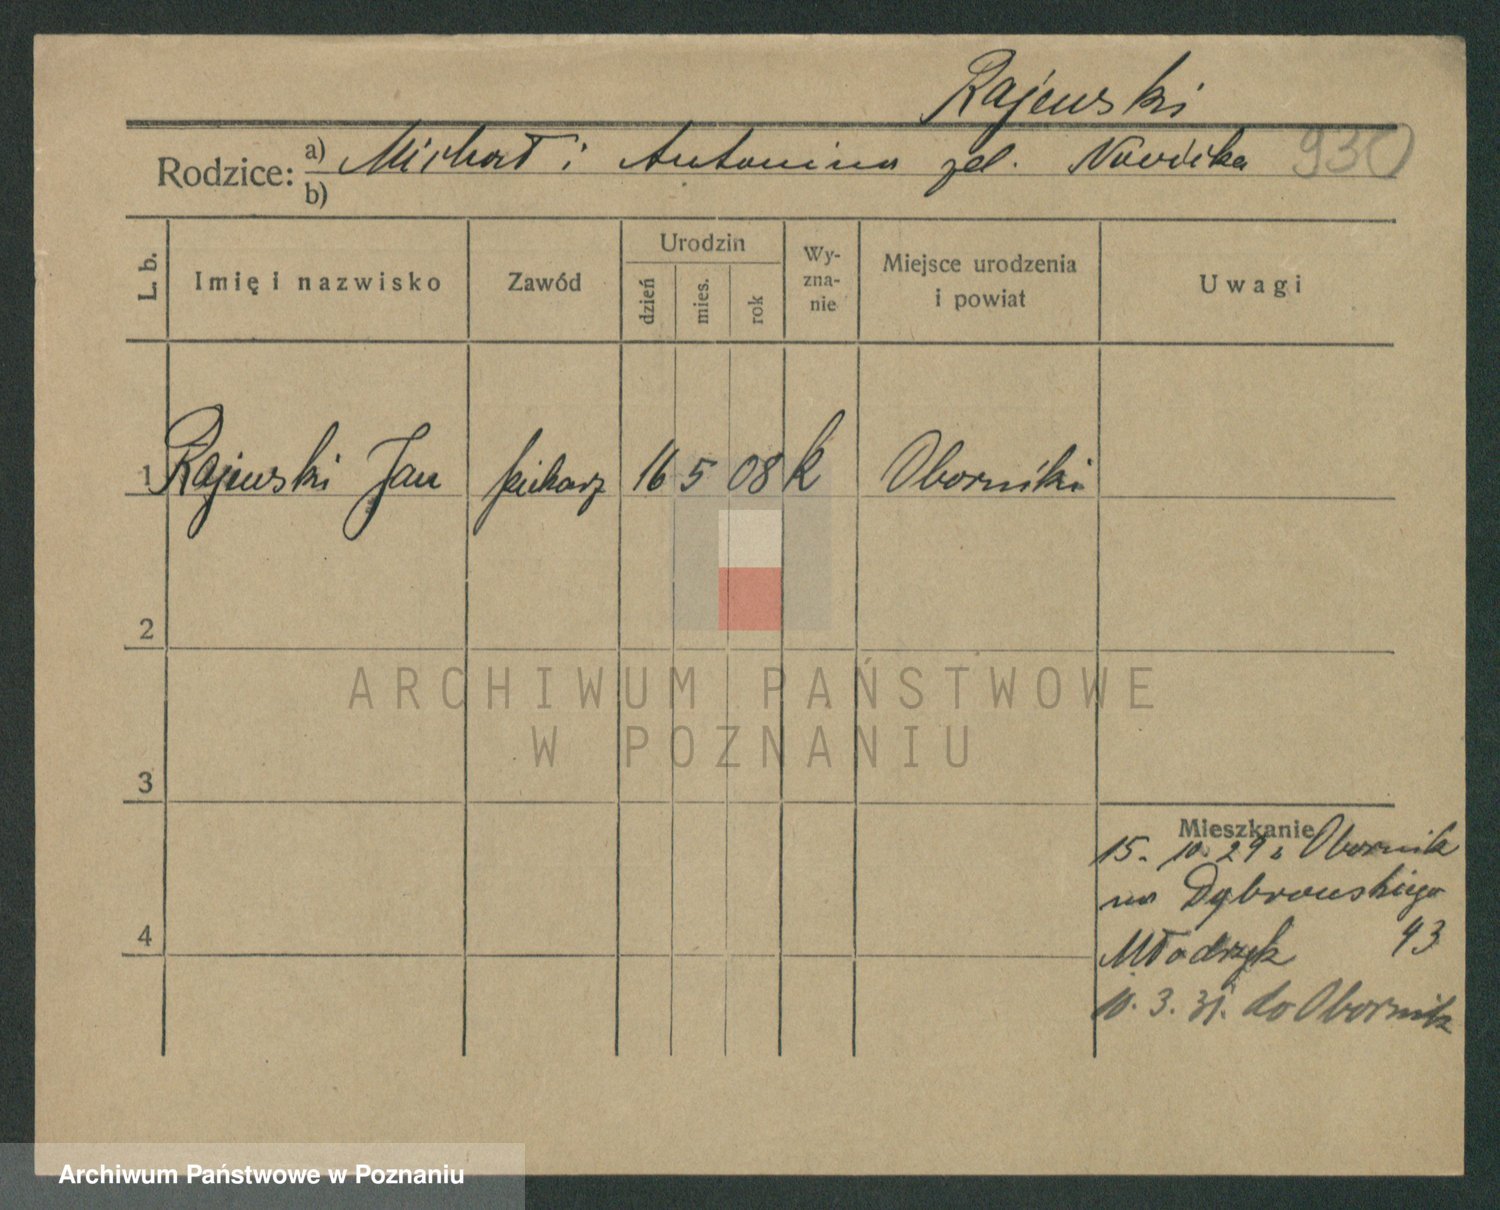 Rajewski
Rodzice: a) Michał i Antonina zd. Nowicka 930
b)
L. b. Imię i nazwisko Zawód Urodzin dzień mies. rok Wy-zna-nie Miejsce urodzenia i powiat Uwagi
1 Rajewski Jan piekarz 16 5 08 k Oborniki
2
ARCHIWUM PAŃSTWOWE
W POZNANIU
3
Mieszkanie
15. 10. 29 z Obornik
na Dąbrowskiego
43
4
10. 3. 31. do Obornik
Archiwum Państwowe w Poznaniu